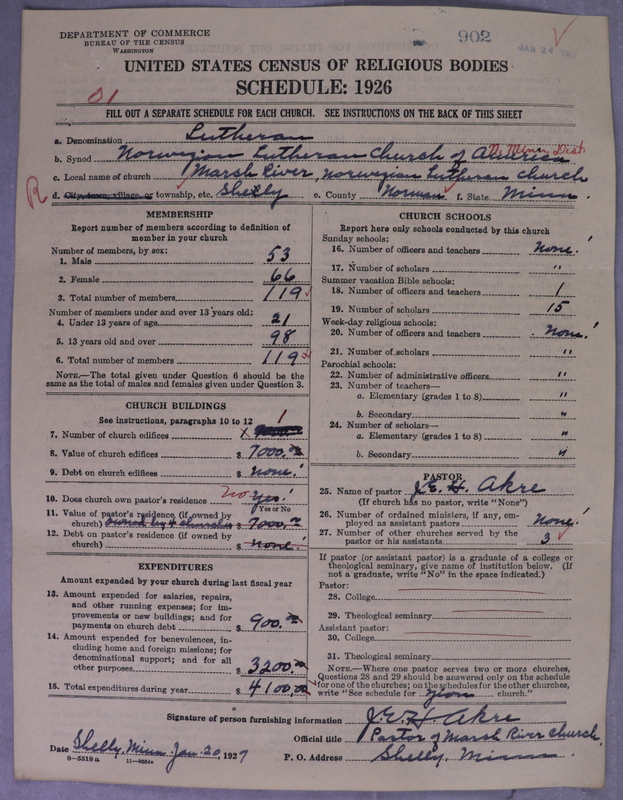 DEPARTMENT OF COMMERCE
BUREAU OF THE CENSUS
WASHINGTON
902
UNITED STATES CENSUS OF RELIGIOUS BODIES
SCHEDULE: 1926
01
FILL OUT A SEPARATE SCHEDULE FOR EACH CHURCH. SEE INSTRUCTIONS ON THE BACK OF THIS SHEET
a. Denomination Lutheran
b. Synod Norwegian Lutheran Church of America N. Minn. Dist.
c. Local name of church Marsh River, Norwegian Lutheran Church
R d. City, town, village, or township, etc. Shelly e. County Norman f. State Minn.
MEMBERSHIP
Report number of members according to definition of
member in your church
Number of members, by sex:
1. Male 53
2. Female 66
3. Total number of members 119
Number of members under and over 13 years old:
4. Under 13 years of age 21
5. 13 years old and over 98
6. Total number of members 119
NOTE.—The total given under Question 6 should be the
same as the total of males and females given under Question 3.
CHURCH BUILDINGS
See instructions, paragraphs 10 to 12
7. Number of church edifices 1
8. Value of church edifices $ 7000.00
9. Debt on church edifices $ None!
10. Does church own pastor's residence No Yes!
Yes or No
11. Value of pastor's residence (if owned by
church) owned by 4 churches $ 7000.00
12. Debt on pastor's residence (if owned by
church) $ None!
EXPENDITURES
Amount expended by your church during last fiscal year
13. Amount expended for salaries, repairs,
and other running expenses; for im-
provements or new buildings; and for
payments on church debt $ 900.00
14. Amount expended for benevolences, in-
cluding home and foreign missions; for
denominational support; and for all
other purposes $ 3200.00
15. Total expenditures during year $ 4100.00
CHURCH SCHOOLS
Report here only schools conducted by this church
Sunday schools:
16. Number of officers and teachers None!
17. Number of scholars "
Summer vacation Bible schools:
18. Number of officers and teachers 1
19. Number of scholars 15
Week-day religious schools:
20. Number of officers and teachers None!
21. Number of scholars "
Parochial schools:
22. Number of administrative officers "
23. Number of teachers—
a. Elementary (grades 1 to 8) "
b. Secondary "
24. Number of scholars—
a. Elementary (grades 1 to 8) "
b. Secondary "
PASTOR
25. Name of pastor J.E.H. Akre
(If church has no pastor, write "None")
26. Number of ordained ministers, if any, em-
ployed as assistant pastors None!
27. Number of other churches served by the
pastor or his assistants 3
If pastor (or assistant pastor) is a graduate of a college or
theological seminary, give name of institution below. (If
not a graduate, write "No" in the space indicated.)
Pastor:
28. College
29. Theological seminary
Assistant pastor:
30. College
31. Theological seminary
NOTE.—Where one pastor serves two or more churches,
Questions 28 and 29 should be answered only on the schedule
for one of the churches; on the schedules for the other churches,
write "See schedule for Zion church."
Signature of person furnishing information J.E.H. Akre
Official title Pastor of Marsh River Church.
Date Shelly, Minn. Jan. 20, 1927
P. O. Address Shelly, Minn.
8—5518 a